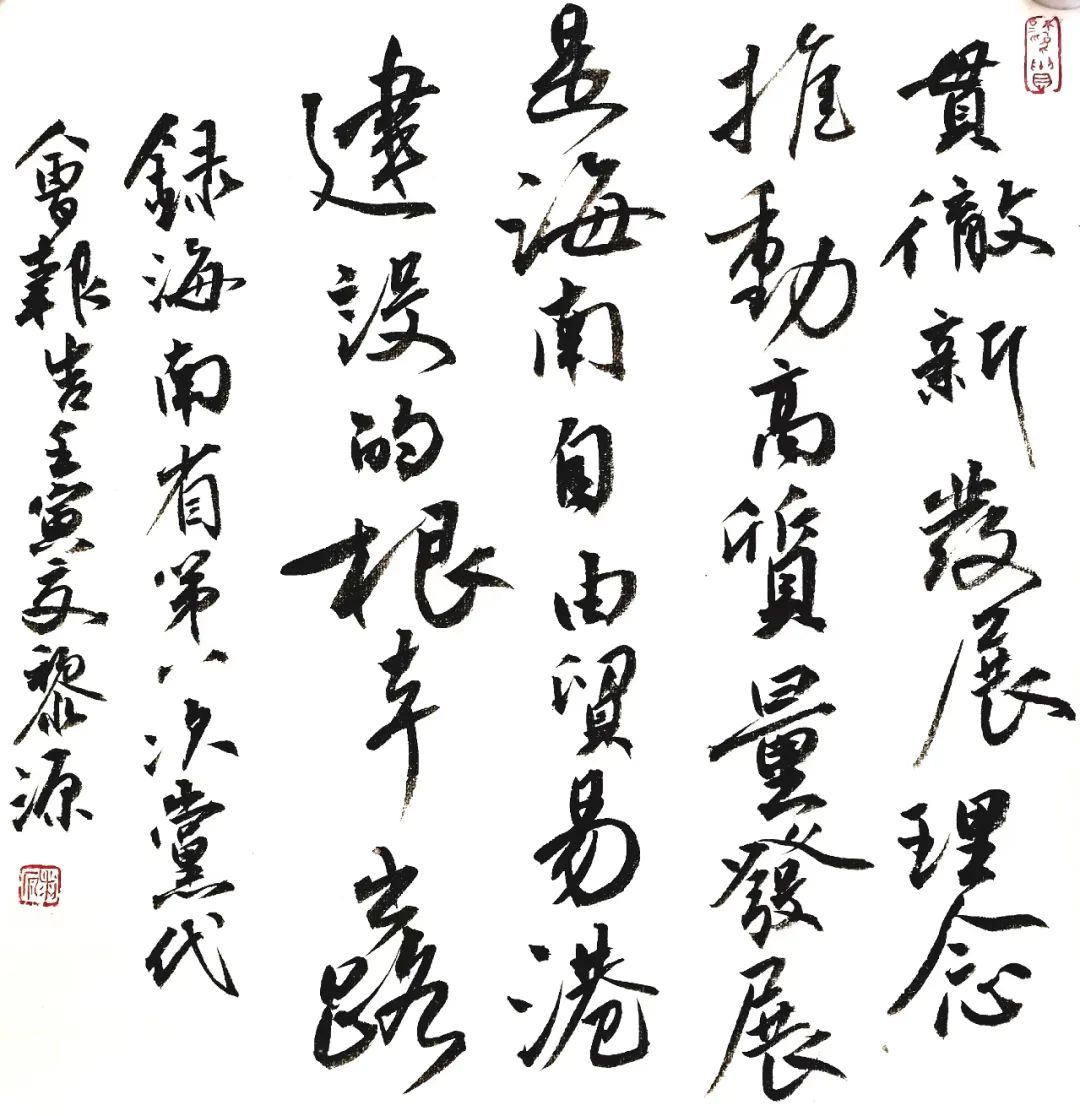 貫徹新發展理念
推動高質量發展
是海南自由貿易港
建設的根本出路
録海南省第八次黨代
會報告壬寅夏黎源